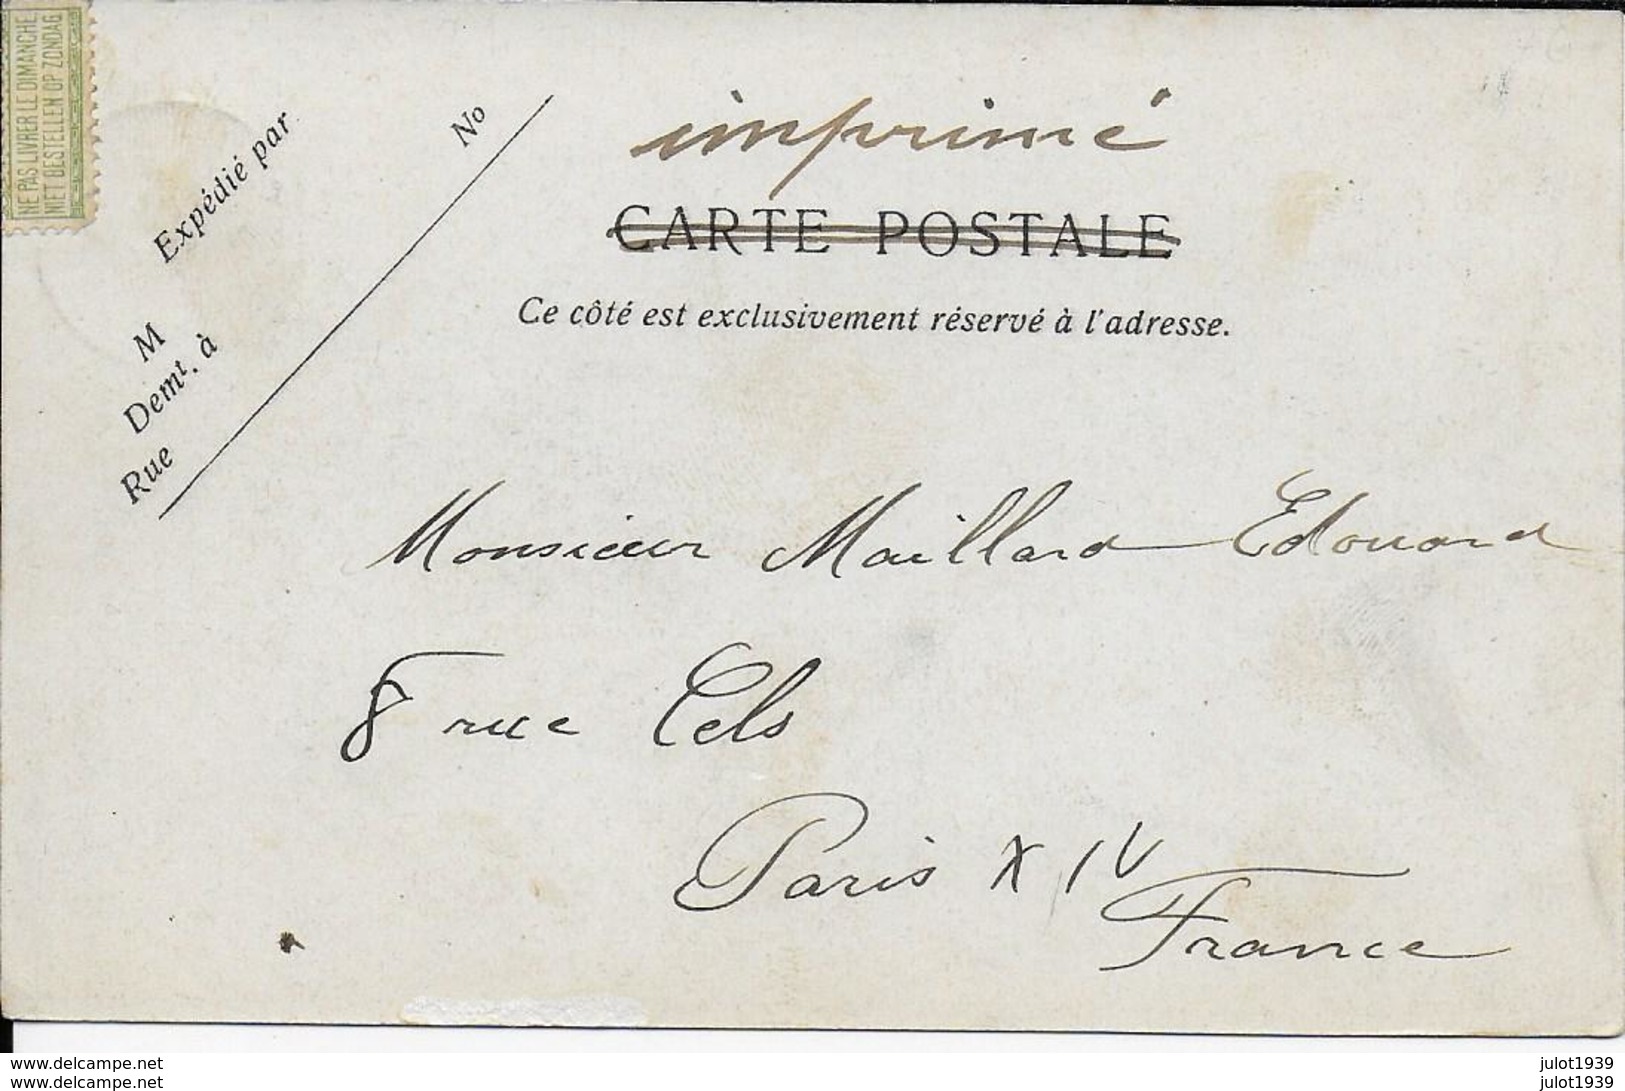 NE PAS LIVRER LE DIMANCHE
NIET BESTELLEN OP ZONDAG
Expédié par
M
Demt. à
Rue
No
imprimé
CARTE POSTALE
Ce côté est exclusivement réservé à l'adresse.
Monsieur Maillard Edouard
8 rue Cels
Paris XIV
France
www.delcampe.net
www.delcampe.net
julot1939
julot1939